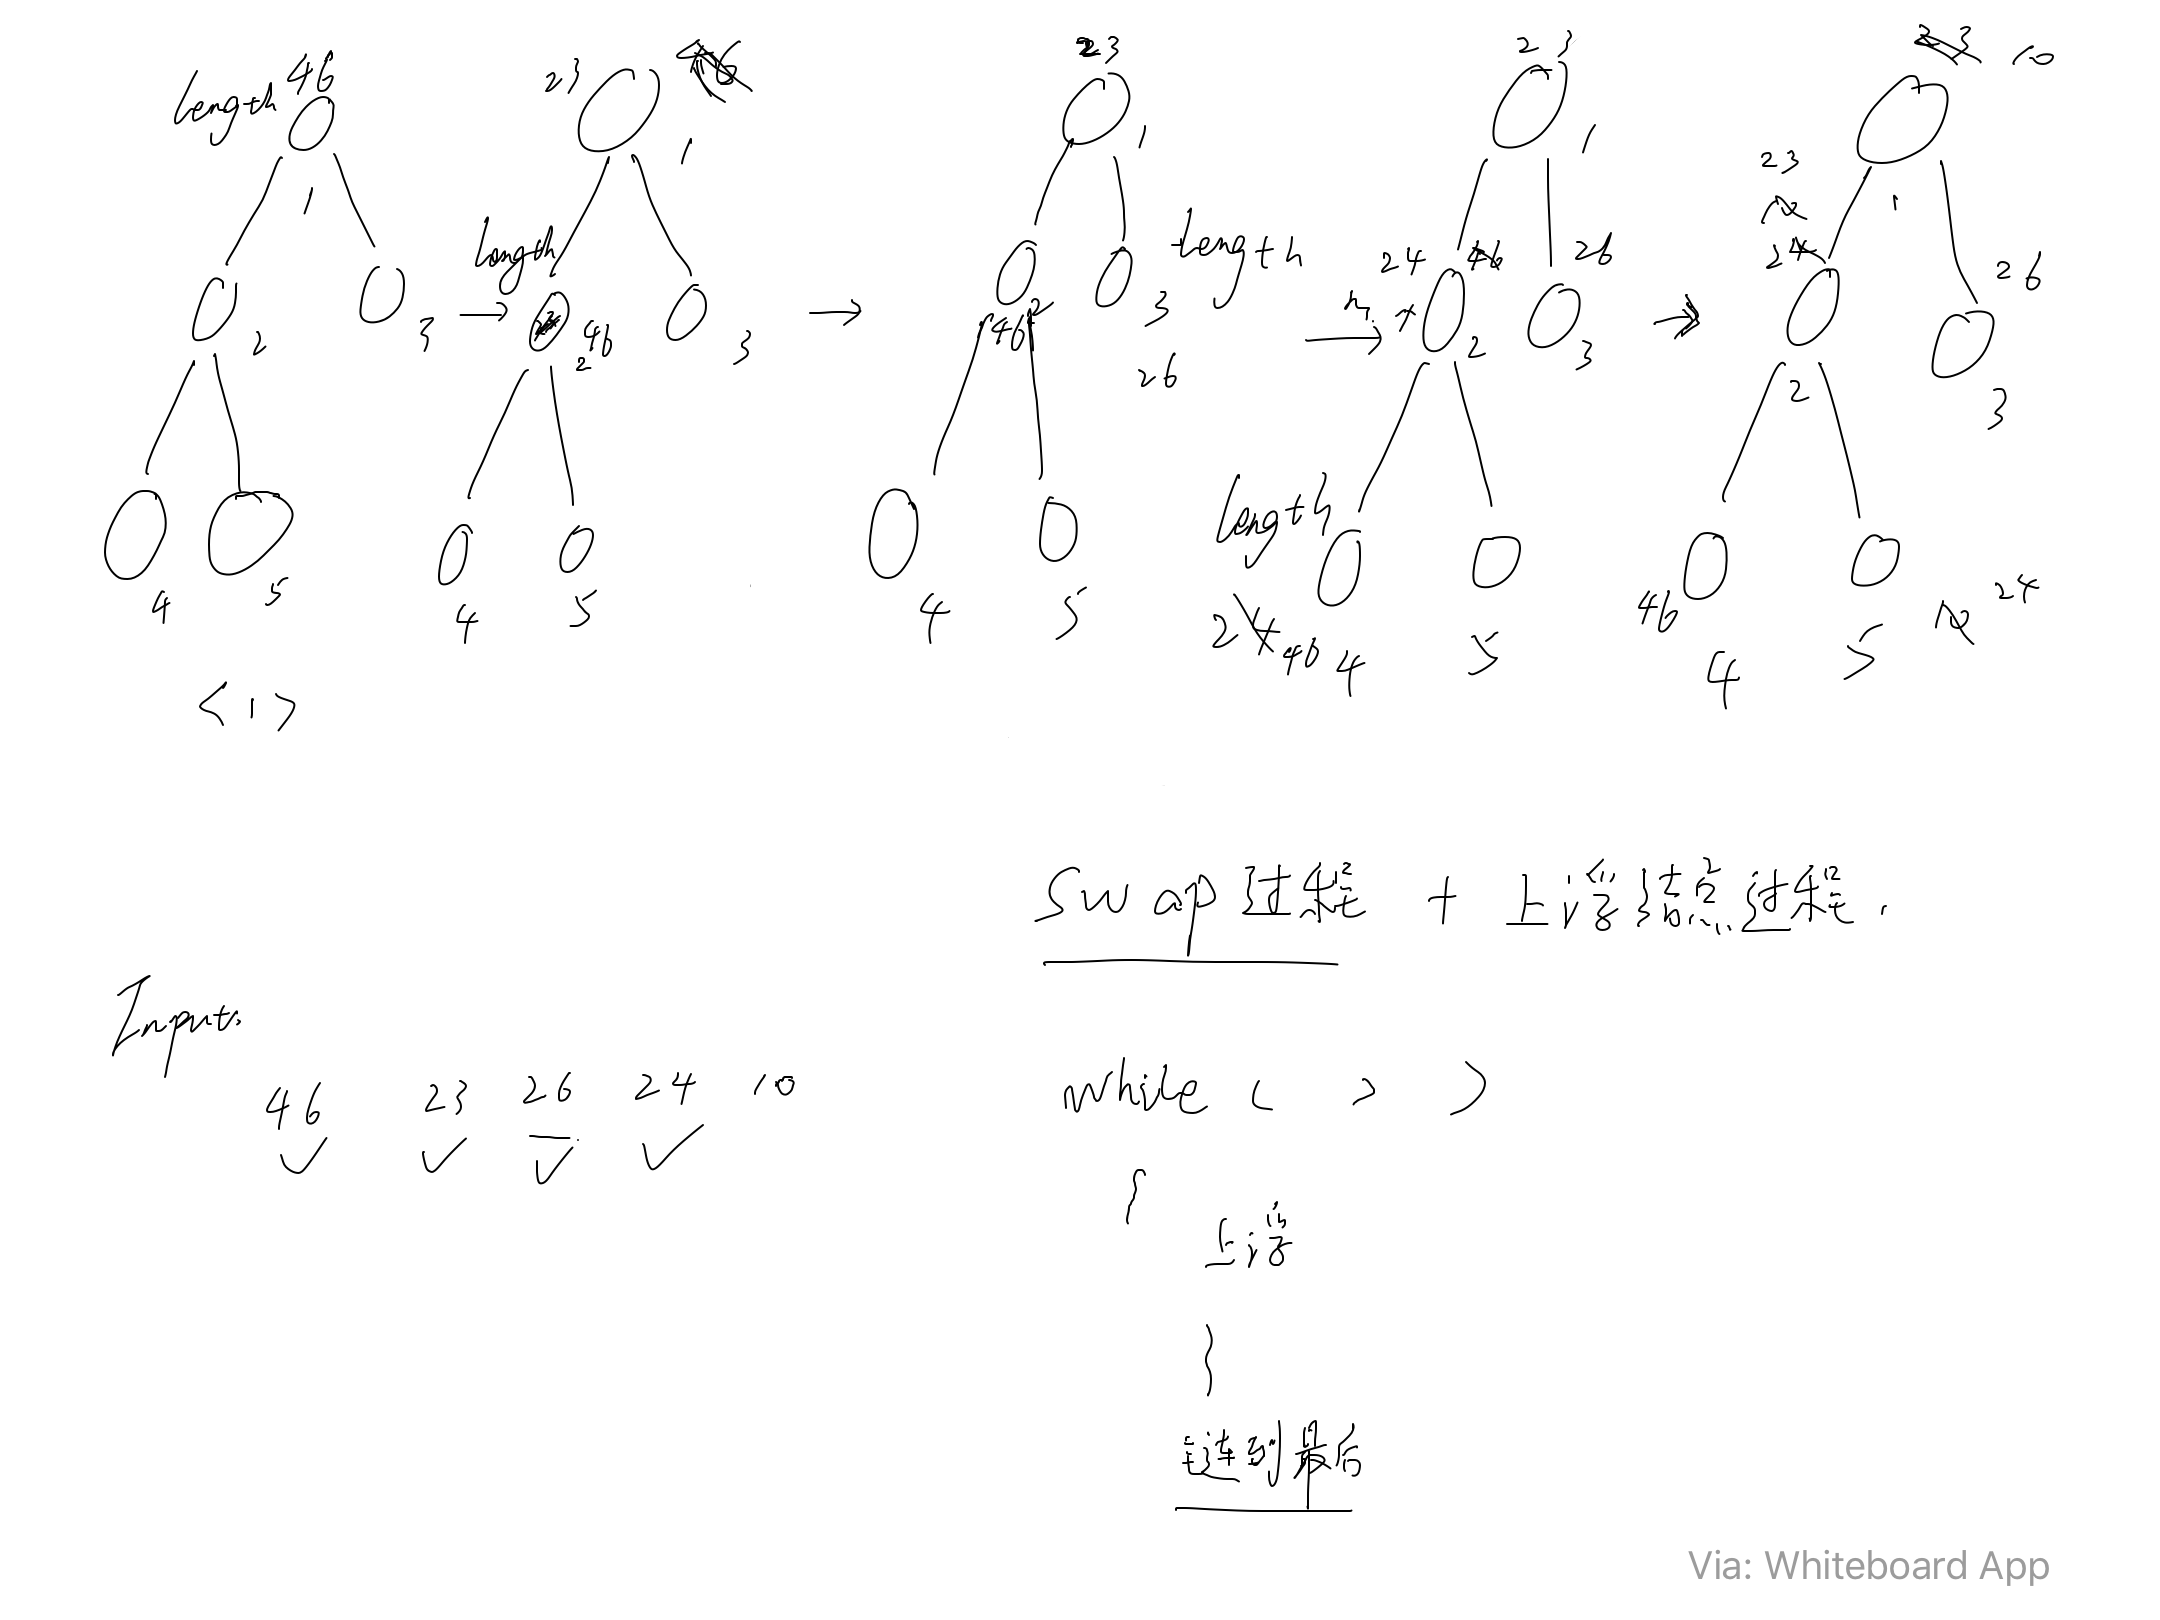 length 46
1
2
3
4
5
<1>
23
1
length
46
2
3
4
5
23
1
length
2
46
3
26
4
5
23
1
24 46 26
2
3
length
24 46 4
5
23 10
23
1
24
26
2
3
46
24
4
5
swap过程 + 上浮结点过程.
Input:
46 23 26 24 10
while ( > )
{
上浮
}
链到最后
Via: Whiteboard App